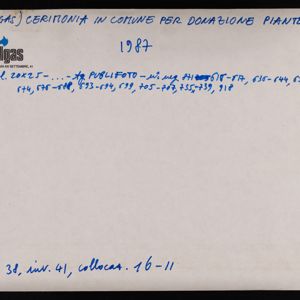 GAS) CERIMONIA IN COMUNE PER DONAZIONE PIANTE
1987
lgas
20x25 - ... - Ag. PUBLIFOTO - n. neg. 616-617, 636-644,
674, 676-688, 693-694, 699, 705-707, 735-739, 918
38, inv. 41, collocaz. 16-11